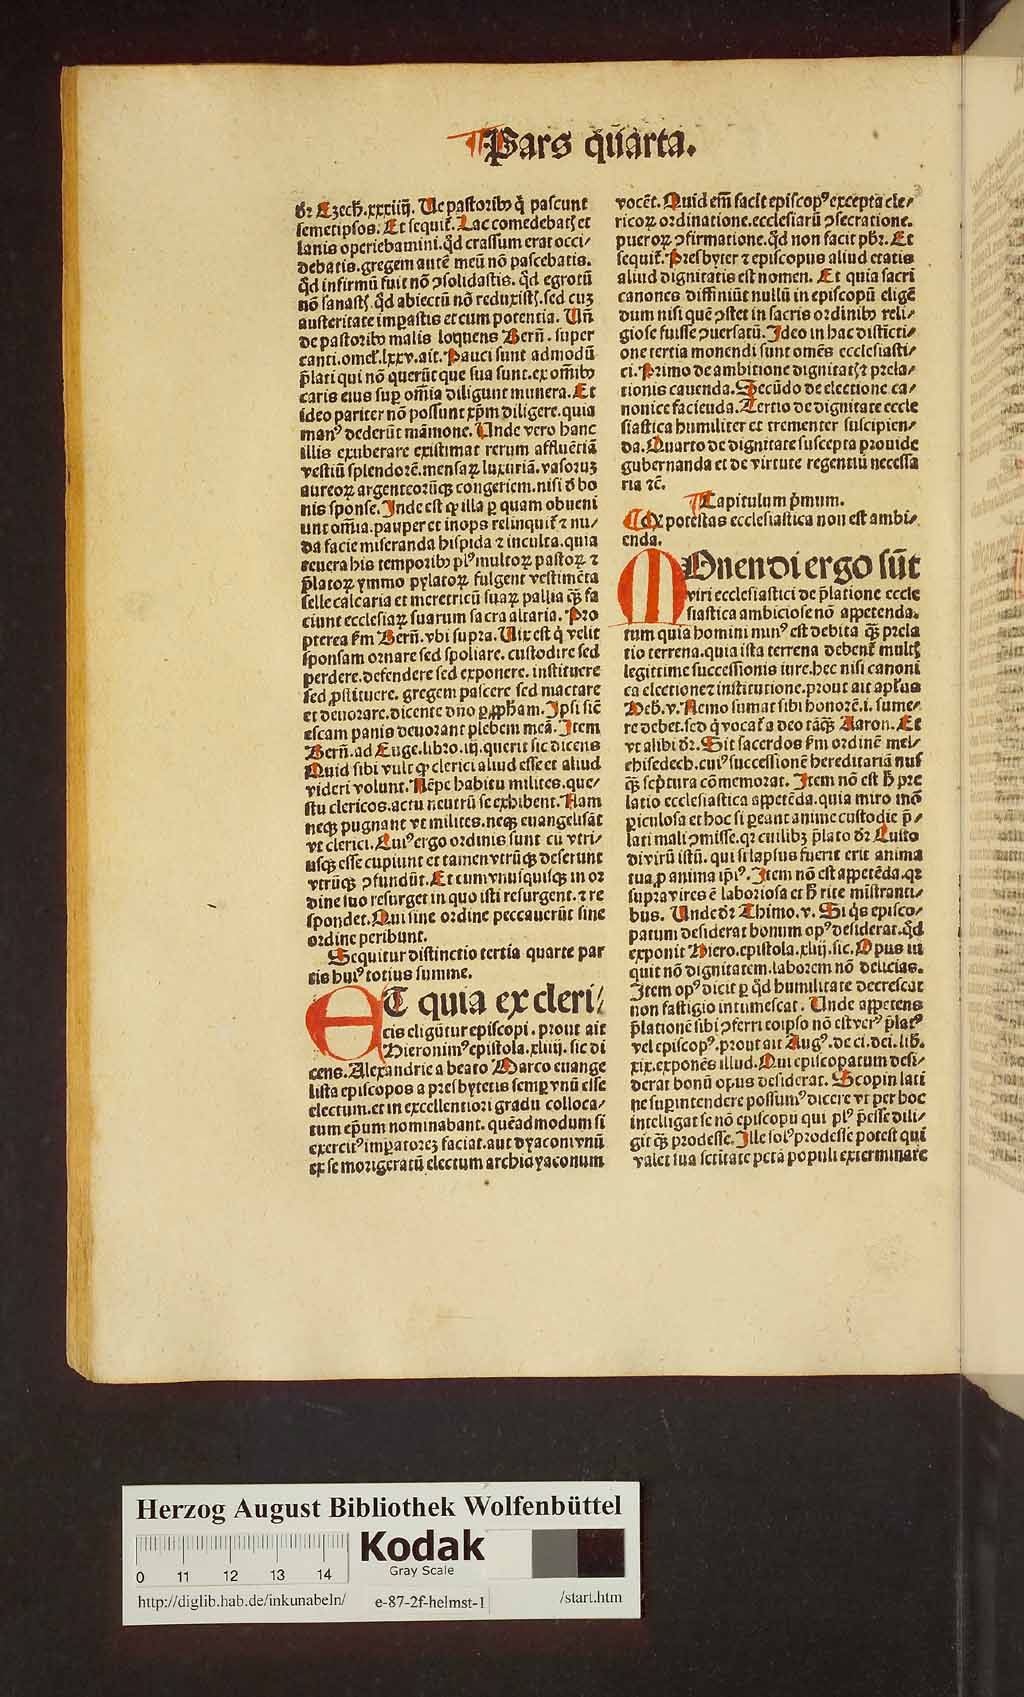 ¶ Pars quarta.
dr̄ Ezech̄.xxxiiij. Ue pastoribꝰ q̇ pascunt
semetipsos. Et sequit᷑. Lac comedebatꝭ et
lanis operiebamini. qd̓ crassum erat occi/
debatis. gregem autē meū nō pascebatis.
qd̓ infirmū fuit nō ꝯsolidastis. qd̓ egrotū
nō sanastꝭ. qd̓ abiectū nō reduxistꝭ. sed cuꝫ
austeritate imꝑastis et cum potentia. Uñ
de pastoribꝰ malis loquens Berñ. super
canti. omel̓. lxxv. ait. Pauci sunt admodū
p̄lati qui nō querūt que sua sunt. ex om̄ibꝰ
caris eius suꝑ om̄ia diligunt munera. Et
ideo pariter nō possunt xp̄m diligere. quia
manꝰ dederūt māmone. Unde vero hanc
illis exuberare existimat rerum affluētiā
vestiū splendorē. mensaꝝ luxuriā. vasoruꝫ
aureoꝝ argenteorūqꝫ congeriem. nisi d̓ bo
nis sponse. Inde est ꝙ illa ꝑ quam obueni
unt om̄ia. pauper et inops relinquit᷑ ⁊ nu/
da facie miseranda hispida ⁊ inculta. quia
reuera his temporibꝰ plꝰ multoꝝ pastoꝝ ⁊
p̄latoꝝ ymmo pylatoꝝ fulgent vestimēta
selle calcaria et meretricū suaꝝ pallia qꝫ̄ fa
ciunt ecclesiaꝝ suarum sacra altaria. Pro
pterea ẜm Berñ. vbi supra. Uix est q̇ velit
sponsam ornare sed spoliare. custodire sed
perdere. defendere sed exponere. instituere
sed ꝓstituere. gregem pascere sed mactare
et deuorare. dicente dn̄o ꝑ ꝓph̄am. Ipsi sic̄
escam panis deuorant plebem meā. Item
Berñ. ad Euge. libro. iij. querit sic dicens
Quid sibi vult ꝙ clerici aliud esse et aliud
videri volunt. Nēpe habitu milites. que/
stu clericos. actu neutrū se exhibent. Nam
neqꝫ pugnant vt milites. neqꝫ euangelisāt
vt clerici. Cuiꝰ ergo ordinis sunt cū vtri/
usqꝫ esse cupiunt et tamen vtrūqꝫ deserunt
vtrūqꝫ ꝯfundūt. Et cum vnusquisqꝫ in or
dine suo resurget in quo isti resurgent. ⁊ re
spondet. Qui sine ordine peccauerūt sine
ordine peribunt.
Sequitur distinctio tertia quarte par
tis huiꝰ totius summe.
ET quia ex cleri/
cis eligūtur episcopi. prout ait
Hieronimꝰ epistola. xluij. sic di
cens. Alexandrie a beato Marco euange
lista episcopos a presbyteris semꝑ vnū esse
electum. et in excellentiori gradu colloca/
tum ep̄um nominabant. quēadmodum si
exercitꝰ imꝑatoreꝫ faciat. aut dyaconi vnū
ex se morigeratū electum archidyaconum
vocēt. Quid em̄ facit episcopꝰ excepta cle/
ricoꝝ ordinatione. ecclesiarū ꝯsecratione.
pueroꝝ ꝯfirmatione. qd̓ non facit pb̄r. Et
sequit᷑. Presbyter ⁊ episcopus aliud etatis
aliud dignitatis est nomen. Et quia sacri
canones diffiniūt nullū in episcopū eligē
dum nisi quē ꝯstet in sacris ordinibꝰ reli/
giose fuisse ꝯuersatū. Ideo in hac distīcti/
one tertia monendi sunt omēs ecclesiasti/
ci. Primo de ambitione dignitatꝭ ⁊ prela/
tionis cauenda. Secūdo de electione ca/
nonice facienda. Tertio de dignitate eccle
siastica humiliter et trementer suscipien/
da. Quarto de dignitate suscepta prouide
gubernanda et de virtute regentiū necessa
ria ⁊c̄.
¶ Capitulum p̄mum.
¶ Qꝙ potestas ecclesiastica non est ambi/
enda.
MOnendi ergo sūt
viri ecclesiastici de p̄latione eccle
siastica ambiciose nō appetenda.
tum quia homini nunꝰ est debita qꝫ̄ prela
tio terrena. quia ista terrena debent᷑ multꝭ
legittime successionis iure. hec nisi canoni
ca electione ⁊ institutione. prout ait apl̓us
Heb̄. v. Nemo sumat sibi honorē. i. sume/
re debet. sed q̇ vocat᷑ a deo tāqꝫ̄ Aaron. Et
vt alibi dr̄. Sit sacerdos ẜm ordinē mel/
chisedech. cuiꝰ successionē hereditariā nus
qꝫ̄ sc̓ptura cōmemorat. Item nō est h̄ pre
latio ecclesiastica appetēda. quia miro mō
ꝑiculosa et hoc si ꝑeant anime custodie p̄/
lati mali ꝯmisse. qꝛ cuilibꝫ p̄lato dr̄ Custo
di virū istū. qui si lapsus fuerit erit anima
tua ꝓ anima ip̄iꝰ. Item nō est appetēda. qꝛ
supra vires ē laboriosa et h̄ rite mīstranti/
bus. Unde dr̄ Thimo. v. Si q̇s episco/
patum desiderat bonum opꝰ desiderat. qd̓
exponit Hiero. epistola. xliij. sic. Opus in
quit nō dignitatem. laborem nō delicias.
Item opꝰ dicit ꝑ qd̓ humilitate decrescat
non fastigio intumescat. Unde appetens
p̄lationē sibi ꝯferri eoipso nō est verꝰ p̄latꝰ
vel episcopꝰ. prout ait Augꝰ. de ci. dei. lib̄.
xix. exponēs illud. Qui episcopatum desi/
derat bonū opus desiderat. Scopin lati
ne suꝑintendere possumꝰ dicere vt per hoc
intelligat se nō episcopū qui plꝰ p̄esse dili/
git qꝫ̄ prodesse. Ille solꝰ prodesse potest qui
valet sua sc̄titate pctā populi exterminare
Herzog August Bibliothek Wolfenbüttel
0 11 12 13 14
Kodak
Gray Scale
http://diglib.hab.de/inkunabeln/ e-87-2f-helmst-1 /start.htm